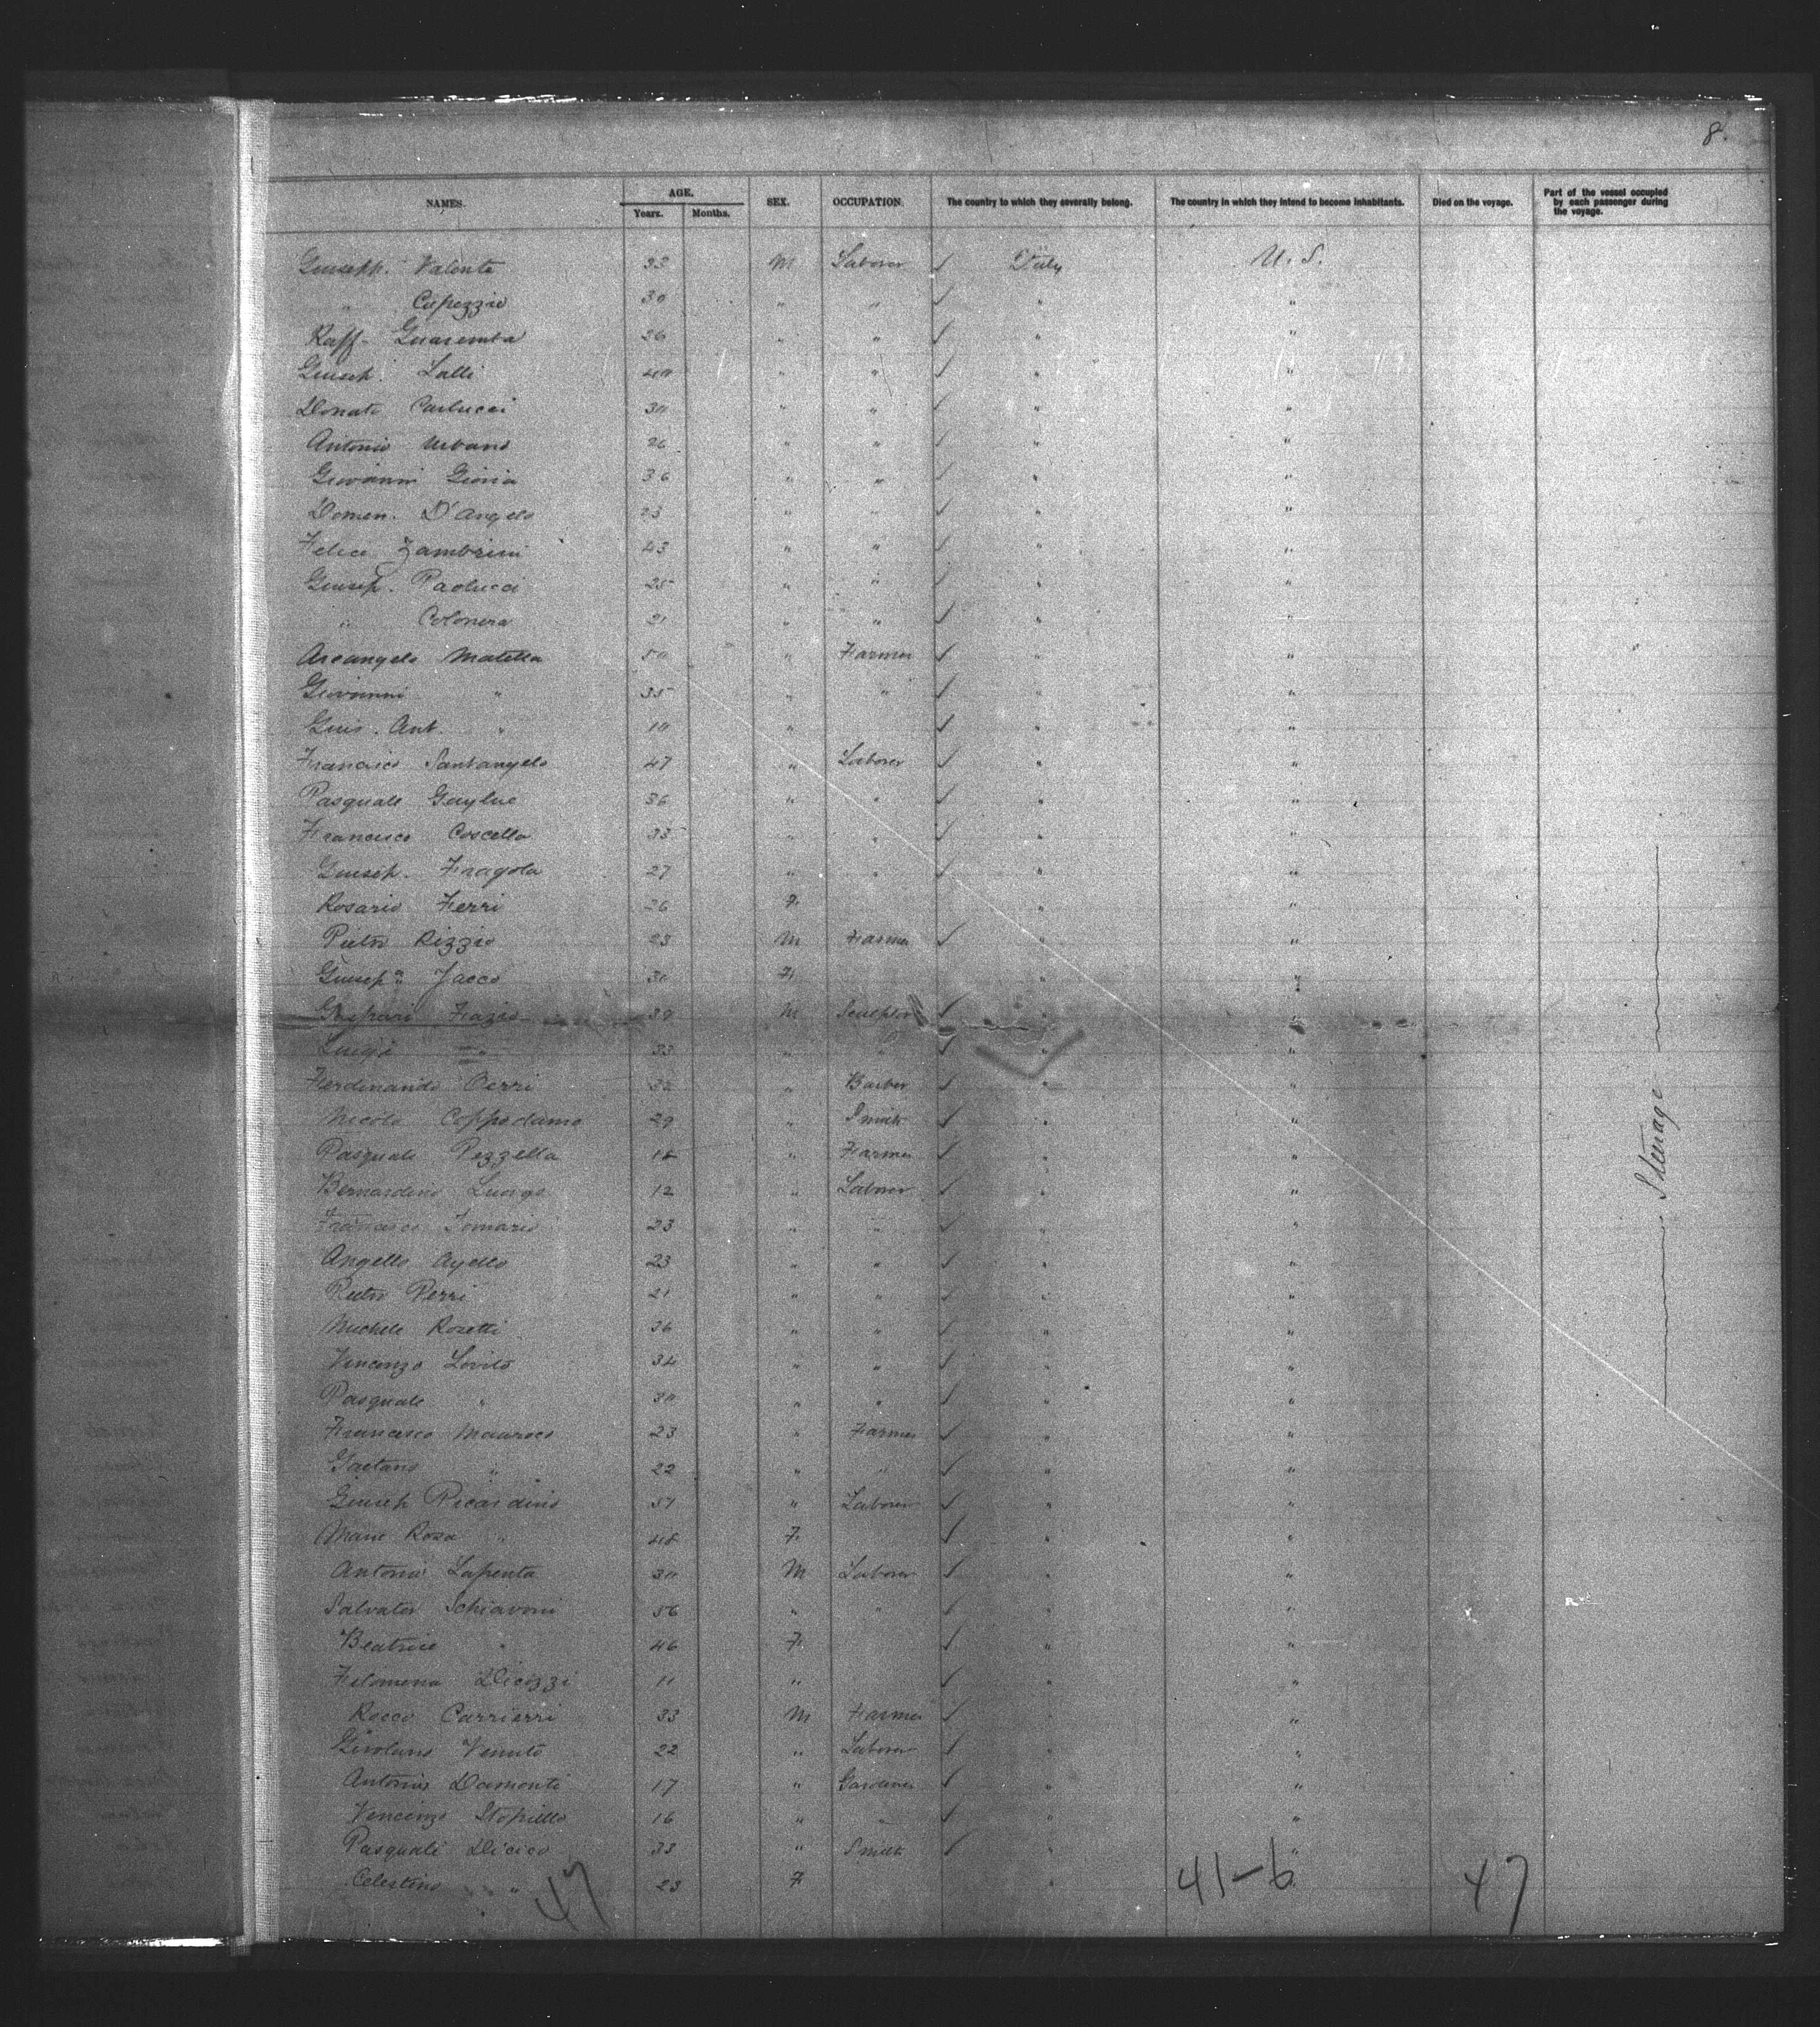 8.
NAMES. AGE. Years. Months. SEX. OCCUPATION. The country to which they severally belong. The country in which they intend to become inhabitants. Died on the voyage. Part of the vessel occupied by each passenger during the voyage.
Giusepp. Valente 33 M Laborer ✓ Italy U. S.
" Capezzio 30 " " ✓ " "
Raff. 26 " " ✓ " "
Giusep. Lalli 40 " " ✓ " "
Donato Carlucci 30 " " ✓ " "
Antonio Urbano 26 " " ✓ " "
Giovanni Gioria 36 " " ✓ " "
Domen. D'Angelo 23 " " ✓ " "
Felice Zambrini 43 " " ✓ " "
Giusep. Paolucci 25 " " ✓ " "
" Colonera 21 " " ✓ " "
Arcangelo Matella 50 " Farmer ✓ " "
Giovanni " 35 " " ✓ " "
Guis. Ant. " 10 " ✓ " "
Francisco Santangelo 47 " Laborer ✓ " "
Pasquale 36 " " ✓ " "
Francisco Coscella 33 " " ✓ " "
Giusep. Fragola 27 " " ✓ " "
Rosario Ferri 26 F. " "
Pietro Rizzio 23 M Farmer ✓ " "
Giusep.a Jacco 30 F. " "
Gaspari Fazio 39 M Sculptor ✓ " "
Luigi " 33 " " ✓ " "
Ferdinando Perri 32 " Barber ✓ " "
Nicola Coppodamo 29 " Smith ✓ " "
Pasquale Pezzella 18 " Farmer ✓ " "
Bernardino Luongo 12 " Laborer ✓ " "
Francesco Tomario 23 " " ✓ " "
Angello Ayello 23 " " ✓ " "
Pietro Perri 21 " " ✓ " "
Michele Rosetti 36 " " ✓ " "
Vincenzo Lovito 34 " " ✓ " "
Pasquale " 30 " " ✓ " "
Francesco Mauroco 23 " Farmer ✓ " "
Gaetano " 22 " " ✓ " "
Giusep Ricardino 51 " Laborer ✓ " "
Marie Rosa " 48 F. ✓ " "
Antonio Lapenta 30 M Laborer ✓ " "
Salvator Schiavoni 56 " " ✓ " "
Beatrice " 46 F. ✓ " "
Filomena Dicozzi 11 " ✓ " "
Rocco Carrierri 33 M Farmer ✓ " "
Girolano Venuto 22 " Laborer ✓ " "
Antonio Damonti 17 " Gardener ✓ " "
Vincenzo Stopiello 16 " " ✓ " "
Pasquale Dicico 33 " Smith ✓ " "
Celestino " 23 F " "
Steerage
47 41-6 47